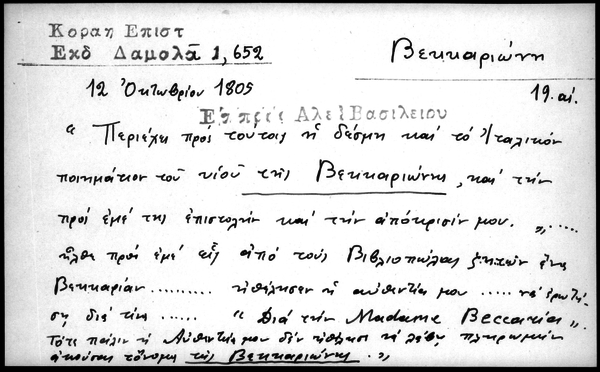 Κοραη Επιστ
Εκδ Δαμολᾶ 1, 652
Βεκκαριώνη
12 Ὀκτωβρίου 1805
19. αἰ.
Επ πρὸς Αλεξ Βασιλειου
"Περιέχει πρὸς τούτοις ἡ δέσμη καὶ τὸ Ἰταλικὸν
ποιημάτιον τοῦ υἱοῦ τῆς Βεκκαριώνης, καὶ τὴν
πρὸς ἐμὲ της ἐπιστολὴν καὶ τὴν ἀπόκρισίν μου. „ .....
ἦλθε πρὸς ἐμὲ εἷς ἀπὸ τοὺς Βιβλιοπώλας ζητῶν ἕνα
Βεκκαρίαν ......... ἠθέλησεν ἡ αὐθεντία μου ..... νὰ ἐρωτή-
σῃ διὰ τίνα ...... " Διὰ τὴν Madame Beccaria „
Τότε πάλιν ἡ Αὐθεντία μου δὲν ἠθέλησε νὰ λάβῃ πληρωμὴν
ἀκούσας τὄνομα τῆς Βεκκαριώνης. „